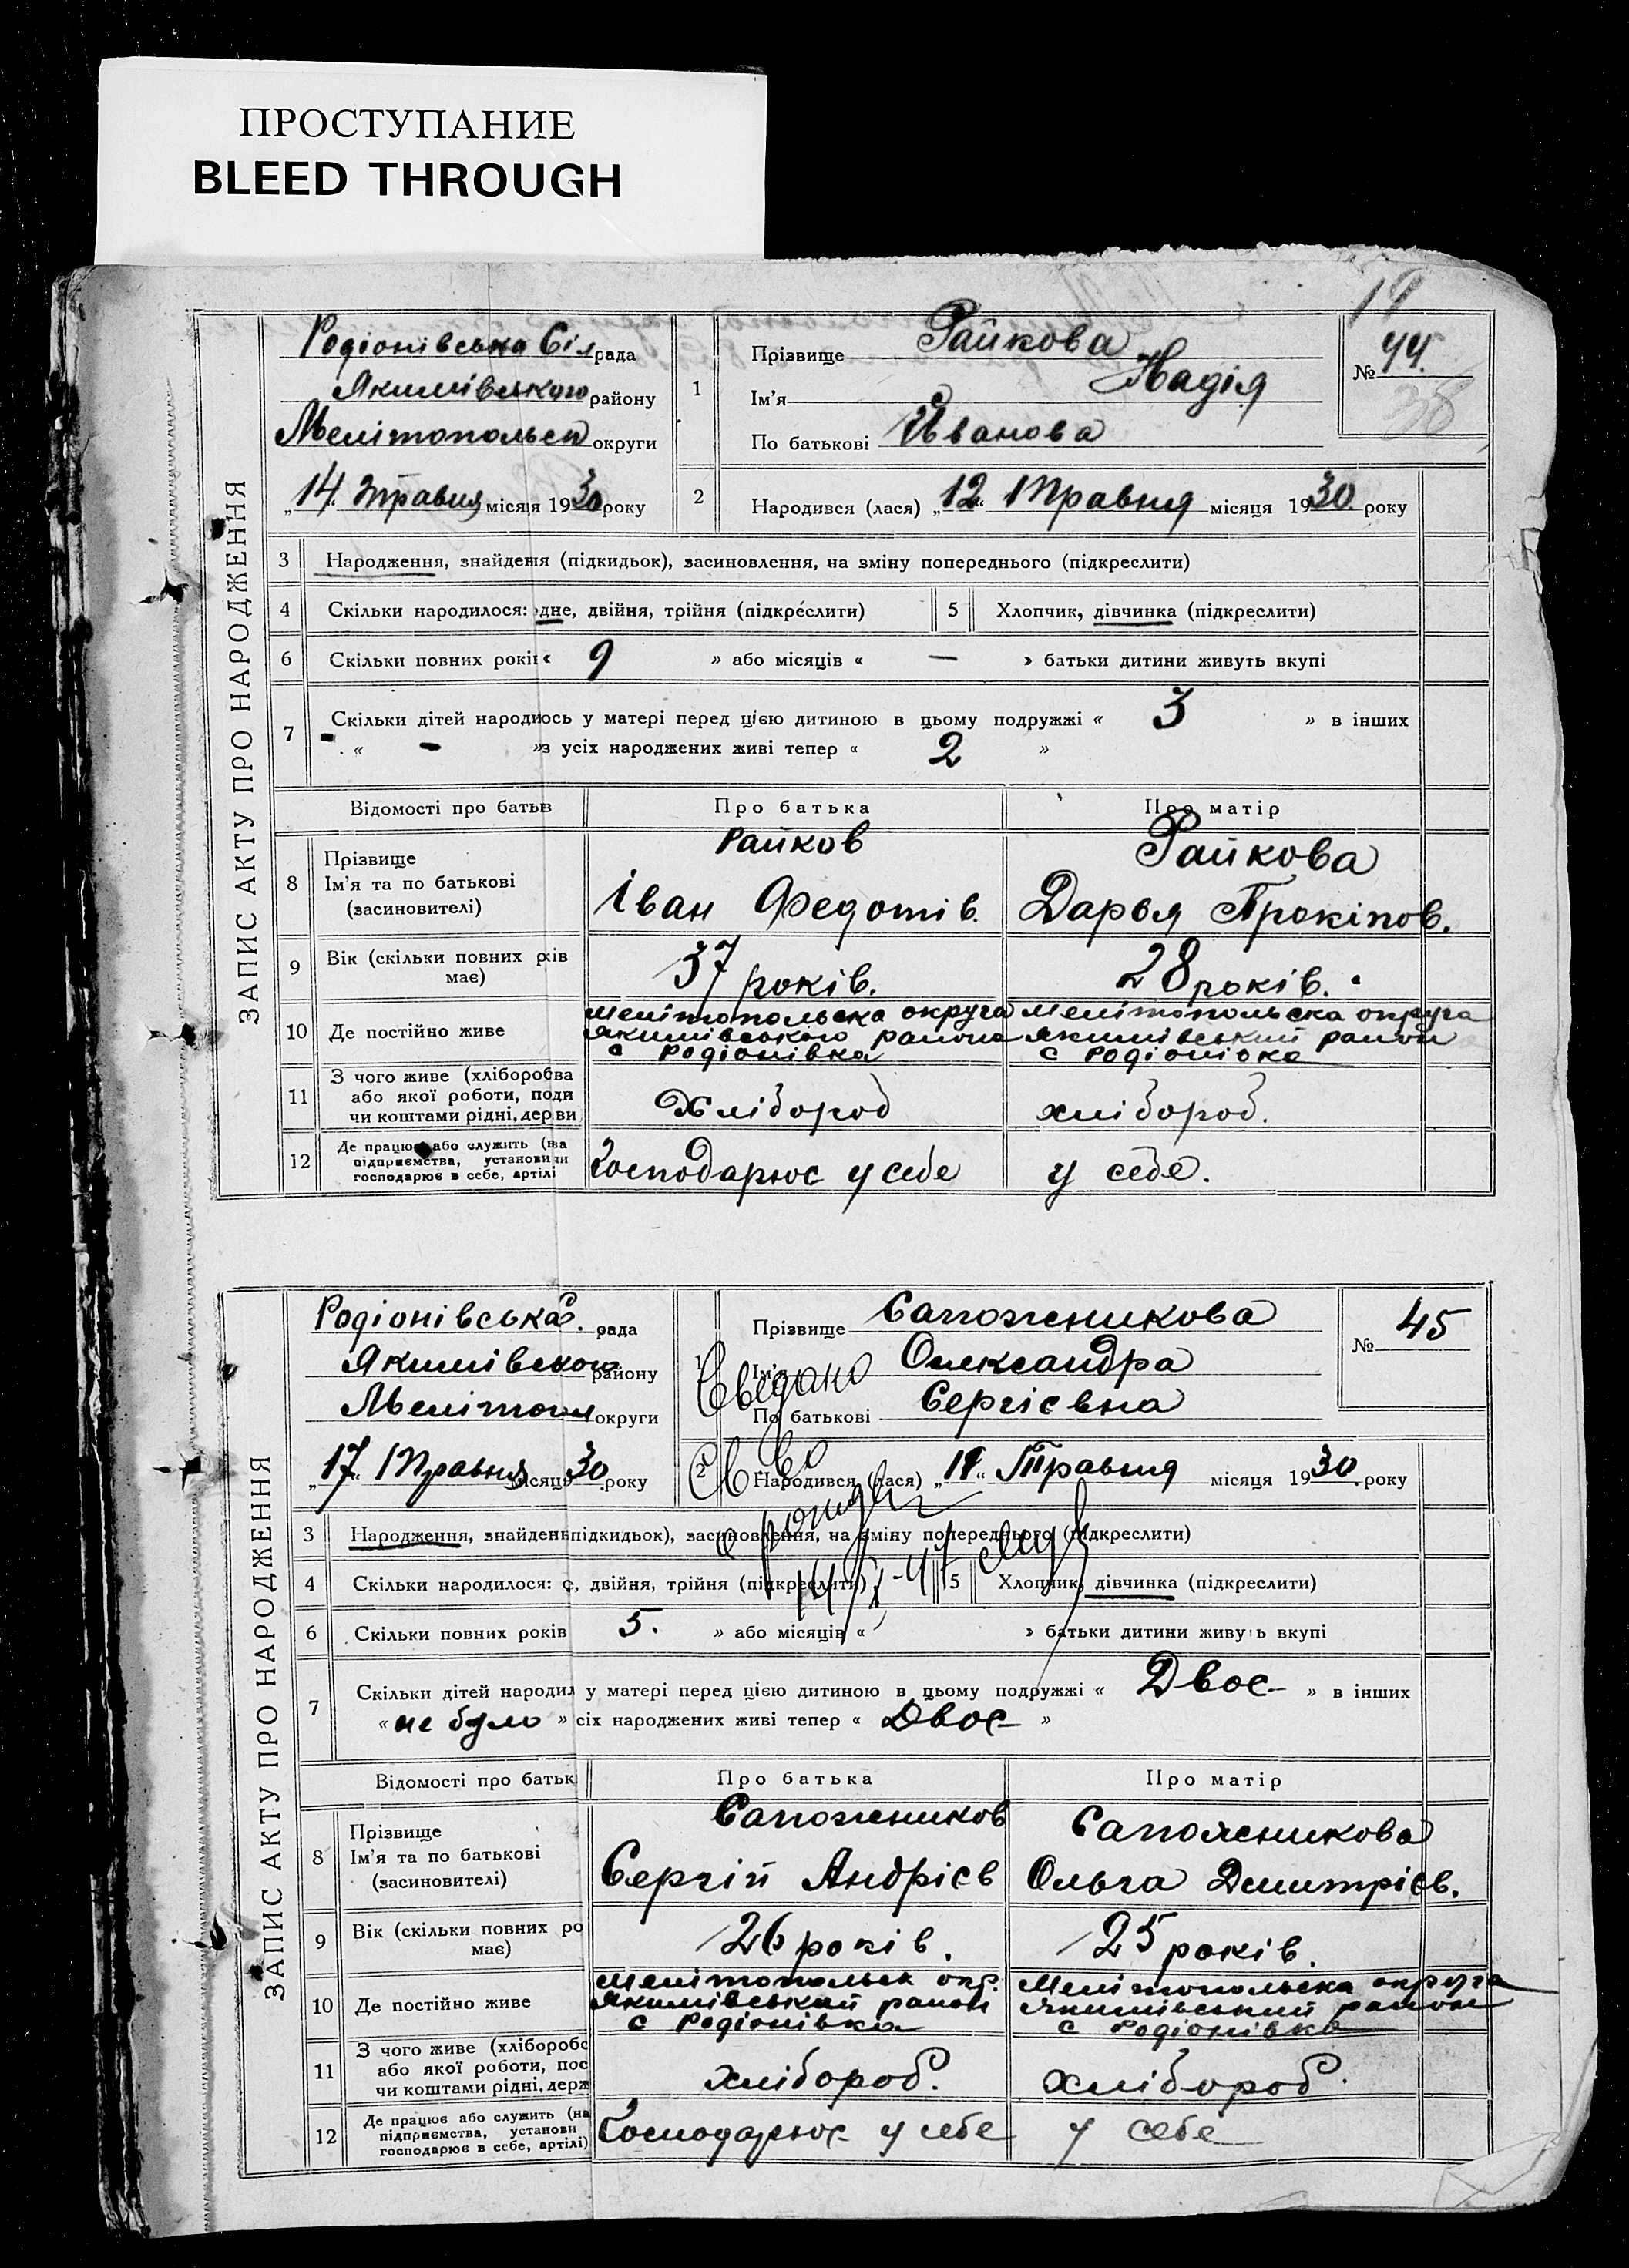 ПРОСТУПАНИЕ
BLEED THROUGH
ЗАПИС АКТУ ПРО НАРОДЖЕННЯ
Родіонівська Сіл рада
Якимівського району
Мелітопольск округи
„14“ Травня місяця 1930 року
1
Прізвище Райкова
Ім'я Надія
По батькові Іванова
№ 44.
38
2 Народився (лася) „12“ Травня місяця 1930. року
3 Народження, знайденя (підкидьок), засиновлення, на зміну попереднього (підкреслити)
4 Скільки народилося: одне, двійня, трійня (підкреслити) 5 Хлопчик, дівчинка (підкреслити)
6 Скільки повних років « 9 » або місяців « — » батьки дитини живуть вкупі
7 Скільки дітей народиось у матері перед цією дитиною в цьому подружжі « 3 » в інших
« - »з усіх народжених живі тепер « 2 »
Відомості про батьв Про батька Про матір
8 Прізвище
Ім'я та по батькові
(засиновителі)
Райков
Іван Федотів.
Райкова
Дарья Прокіпов.
9 Вік (скільки повних рків
має)
37 років. 28 років.
10 Де постійно живе
Мелітопольска округа
Якимівського района
с Родіонівка
Мелітопольска округа
Якимівський район
с Родіонівка
11 З чого живе (хліборобва
або якої роботи, поди
чи коштами рідні, дерви
Хлібороб хлібороб.
12 Де працює або служить (на
підприємства, установи чи
господарює в себе, артілі
Господарює у себе у себе.
ЗАПИС АКТУ ПРО НАРОДЖЕННЯ
Родіонівська С. рада
Якимівского району
Мелітопол округи
„17“ Травня місяця 30 року
Прізвище Сапожникова
Ім'я Олександра
По батькові Сергієвна
№ 45
2 Народився (лася) „11“ Травня місяця 1930 року
3 Народження, знайденьпідкидьок), засиновлення, на зміну попереднього (підкреслити)
4 Скільки народилося: о, двійня, трійня (підкреслити) 5 Хлопчик, дівчинка (підкреслити)
6 Скільки повних років 5. » або місяців « » батьки дитини живуть вкупі
7 Скільки дітей народил у матері перед цією дитиною в цьому подружжі « Двоє » в інших
« не було » сіх народжених живі тепер « Двоє »
Відомості про батьк Про батька Про матір
8 Прізвище
Ім'я та по батькові
(засиновителі)
Сапожников
Сергій Андрієв
Сапожникова
Ольга Дмитрієв.
9 Вік (скільки повних ро
має)
26 років. 25 років.
10 Де постійно живе
Мелітопольск окр.
Якимівський район
с Родіонівка
Мелітопольска округа
Якимівський район
с Родіонівка
11 З чого живе (хліборобс
або якої роботи, пос
чи коштами рідні, держ
хлібороб. хлібороб.
12 Де працює або служить (на
підприємства, установи
господарює в себе, артілі)
Господарює у себе у себе